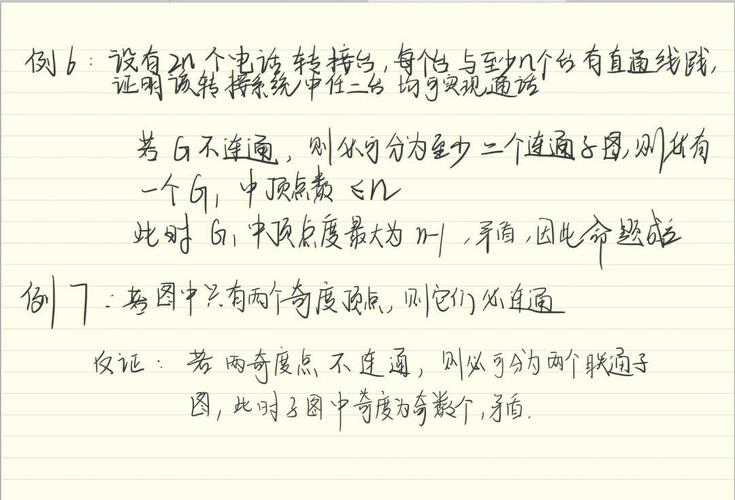 例6：设有2n个电话转接台，每个台与至少n个台有直通线路，
证明该转接系统中任二台均可实现通话
若G不连通，则必可分为至少二个连通子图，则必有
一个G₁中顶点数≤n
此时G₁中顶点度最大为n-1，矛盾，因此命题成立
例7：若图中只有两个奇度顶点，则它们必连通
反证：若两奇度点不连通，则必可分为两个联通子
图，此时子图中奇度为奇数个，矛盾.